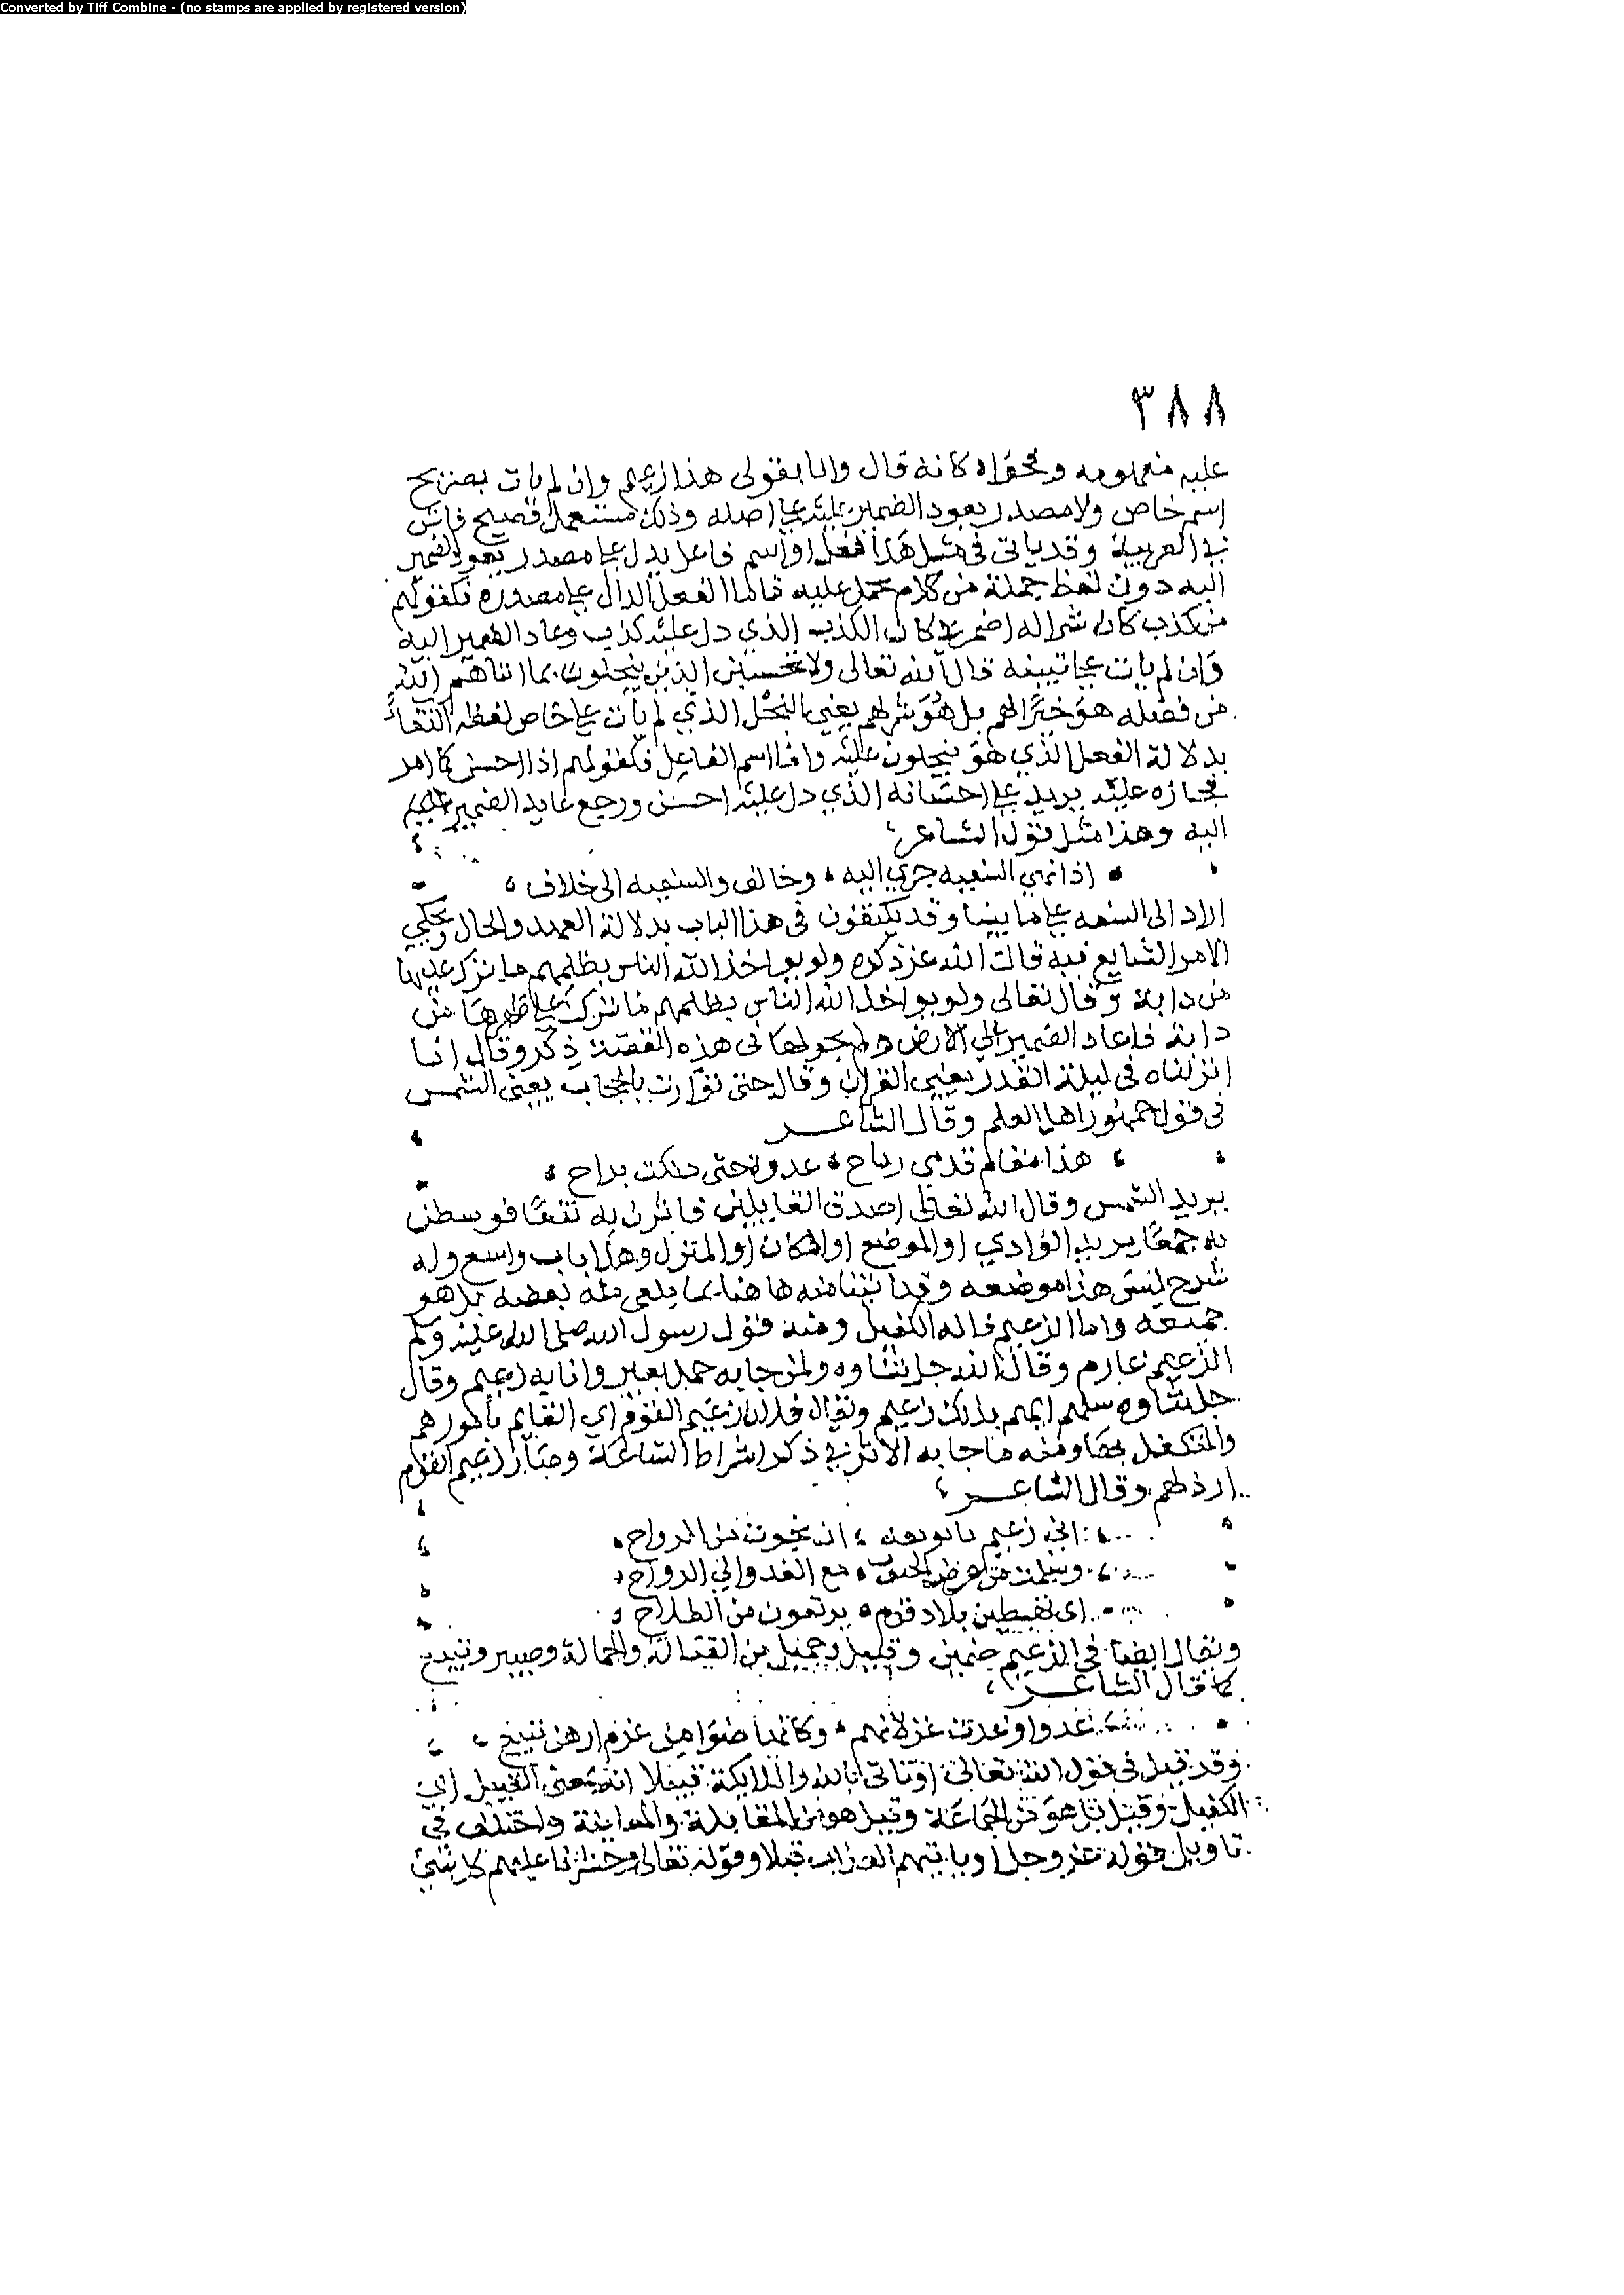 Converted by Tiff Combine - (no stamps are applied by registered version)
٣٨٨
عليه مفهومه وفحواه كانه قال وانا بقولى هذا زعيم وان لم يات بصريح
اسم خاص ولا مصدر يعود الضمير عليه على اصله وذلك مستعمل فصيح فاش
في العربية وقد ياتى فى مثل هذا فعل او اسم فاعل يدل على مصدر يعود الضمير
اليه دون لفظ جملة من كلام تحمل عليه فاما الفعل الدال على مصدره فكقولهم
من كذب كان شرا له اضمر في كان الكذب الذي دل عليه كذب وعاد الضمير اليه
وان لم يات على تبينه قال الله تعالى ولا تحسبن الذين يبخلون بما اتاهم الله
من فضله هو خيرا لهم بل هو شر لهم يعني البخل الذي لم يات على خاص لفظه اكتفاء
بدلالة الفعل الذي هو يبخلون عليه واما اسم الفاعل فكقولهم اذا احسن كما امر
فجازه عليه يريد على احسانه الذي دل عليه احسن ورجع عايد الضمير
اليه وهذا مثل قول الشاعر
اذا نهي السفيه جري اليه وخالف والسفيه الى خلاف
اراد الى السفه على ما بينا وقد يكتفون فى هذا الباب بدلالة العهد والحال
الامر الشايع فيه قال الله عز ذكره ولو يواخذ الله الناس بظلمهم ما ترك عليها
من دابة وقال تعالى ولو يواخذ الله الناس بظلمهم ما ترك على ظهرها من
دابة فاعاد الضمير الى الارض ولم يجر لها فى هذه القصة ذكر وقال انا
انزلناه فى ليلة القدر يعني القران وقال حتى توارت بالحجاب يعنى الشمس
فى قول جمهور اهل العلم وقال الشاعر
هذا مقام قدمي رباح غدوة حتى دلكت براح
يريد الشمس وقال الله تعالى اصدق القايلين فاثرن به نقعا فوسطن
به جمعا يريد الوادي او الموضع او المكان او المنزل وهذا باب واسع وله
شرح ليس هذا موضعه وقد اثبتنا منه ها هنا بما بعضه بل هو
جميعه واما الزعيم فانه الكفيل ومنه قول رسول الله صلى الله عليه وسلم
الزعيم غارم وقال الله جل ثناوه ولمن جا به حمل بعير وانا به زعيم وقال
جل ثناوه سلهم ايهم بذلك زعيم ويقال فلان زعيم القوم اي القايم بامورهم
والمتكفل بها ومنه ما جا به الاثر في ذكر اشراط الساعة وصار زعيم القوم
ارذلهم وقال الشاعر
اني زعيم يا نويقة ان نجوت من الرواح
وسلمت من عرض الحتوف مع الغدو الي الرواح
ان تهبطين بلاد قوم يرتعون من الطلاح
ويقال ايضا في الزعيم ضمين وقبيل وحميل من القبالة والحمالة وصبير وتبيع
كما قال الشاعر
غدوا وغدت غزلانهم وكانها ضوامن غرم
وقد قيل فى قول الله تعالى او تاتى بالله والملايكة قبيلا انه بمعنى القبيل اي
الكفيل وقيل بل هو من الجماعة وقيل هو من المقابلة والمعاينة واختلف في
تاويل قوله عز وجل او ياتيهم العذاب قبلا وقوله تعالى وحشرنا عليهم كل شئ